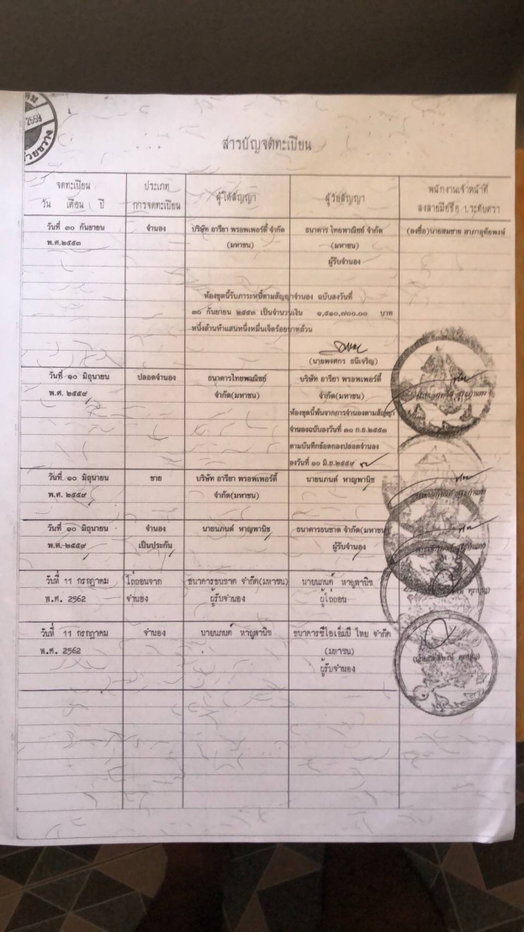 2559
ห้วยขวาง
สารบัญจดทะเบียน
จดทะเบียน
วัน เดือน ปี
ประเภท
การจดทะเบียน
ผู้ให้สัญญา
ผู้รับสัญญา
พนักงานเจ้าหน้าที่
ลงลายมือชื่อ ประทับตรา
วันที่ ๓๐ กันยายน
พ.ศ.๒๕๕๓
จำนอง
บริษัท อารียา พรอพเพอร์ตี้ จำกัด
(มหาชน)
ธนาคาร ไทยพาณิชย์ จำกัด
(มหาชน)
ผู้รับจำนอง
(ลงชื่อ)นายสมชาย อาภาอุทัยพงษ์
ห้องชุดนี้รับภาระหนี้ตามสัญญาจำนอง ฉบับลงวันที่
๓๐ กันยายน ๒๕๕๓ เป็นจำนวนเงิน ๑,๕๑๐,๗๐๐.๐๐ บาท
หนึ่งล้านห้าแสนหนึ่งหมื่นเจ็ดร้อยบาทถ้วน
(นายพงศกร ธนีเจริญ)
วันที่ ๑๐ มิถุนายน
พ.ศ. ๒๕๕๙
ปลอดจำนอง
ธนาคารไทยพาณิชย์
จำกัด(มหาชน)
บริษัท อารียา พรอพเพอร์ตี้
จำกัด(มหาชน)
ห้องชุดนี้พ้นจากการจำนองตามสัญญา
จำนองฉบับลงวันที่ ๓๐ ก.ย.๒๕๕๓
ตามบันทึกข้อตกลงปลอดจำนอง
ลงวันที่ ๑๐ มิ.ย.๒๕๕๙
วันที่ ๑๐ มิถุนายน
พ.ศ. ๒๕๕๙
ขาย
บริษัท อารียา พรอพเพอร์ตี้
จำกัด(มหาชน)
นายนภนต์ หาญพานิช
วันที่ ๑๐ มิถุนายน
พ.ศ. ๒๕๕๙
จำนอง
เป็นประกัน
นายนภนต์ หาญพานิช
ธนาคารธนชาต จำกัด(มหาชน)
ผู้รับจำนอง
วันที่ 11 กรกฎาคม
พ.ศ. 2562
ไถ่ถอนจาก
จำนอง
ธนาคารธนชาต จำกัด(มหาชน)
ผู้รับจำนอง
นายนภนต์ หาญพานิช
ผู้ไถ่ถอน
วันที่ 11 กรกฎาคม
พ.ศ. 2562
จำนอง
นายนภนต์ หาญพานิช
ธนาคารซีไอเอ็มบี ไทย จำกัด
(มหาชน)
ผู้รับจำนอง